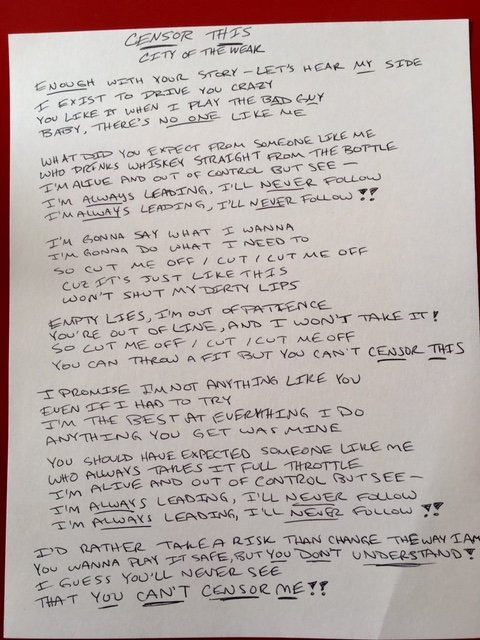 CENSOR THIS
CITY OF THE WEAK
ENOUGH WITH YOUR STORY - LET'S HEAR MY SIDE
I EXIST TO DRIVE YOU CRAZY
YOU LIKE IT WHEN I PLAY THE BAD GUY
BABY, THERE'S NO ONE LIKE ME
WHAT DID YOU EXPECT FROM SOMEONE LIKE ME
WHO DRINKS WHISKEY STRAIGHT FROM THE BOTTLE
I'M ALIVE AND OUT OF CONTROL BUT SEE -
I'M ALWAYS LEADING, I'LL NEVER FOLLOW
I'M ALWAYS LEADING, I'LL NEVER FOLLOW !!
I'M GONNA SAY WHAT I WANNA
I'M GONNA DO WHAT I NEED TO
SO CUT ME OFF / CUT / CUT ME OFF
CUZ IT'S JUST LIKE THIS
WON'T SHUT MY DIRTY LIPS
EMPTY LIES, I'M OUT OF PATIENCE
YOU'RE OUT OF LINE, AND I WON'T TAKE IT!
SO CUT ME OFF / CUT / CUT ME OFF
YOU CAN THROW A FIT BUT YOU CAN'T CENSOR THIS
I PROMISE I'M NOT ANYTHING LIKE YOU
EVEN IF I HAD TO TRY
I'M THE BEST AT EVERYTHING I DO
ANYTHING YOU GET WAS MINE
YOU SHOULD HAVE EXPECTED SOMEONE LIKE ME
WHO ALWAYS TAKES IT FULL THROTTLE
I'M ALIVE AND OUT OF CONTROL BUT SEE -
I'M ALWAYS LEADING, I'LL NEVER FOLLOW
I'M ALWAYS LEADING, I'LL NEVER FOLLOW !!
I'D RATHER TAKE A RISK THAN CHANGE THE WAY I AM
YOU WANNA PLAY IT SAFE, BUT YOU DON'T UNDERSTAND!
I GUESS YOU'LL NEVER SEE
THAT YOU CAN'T CENSOR ME !!